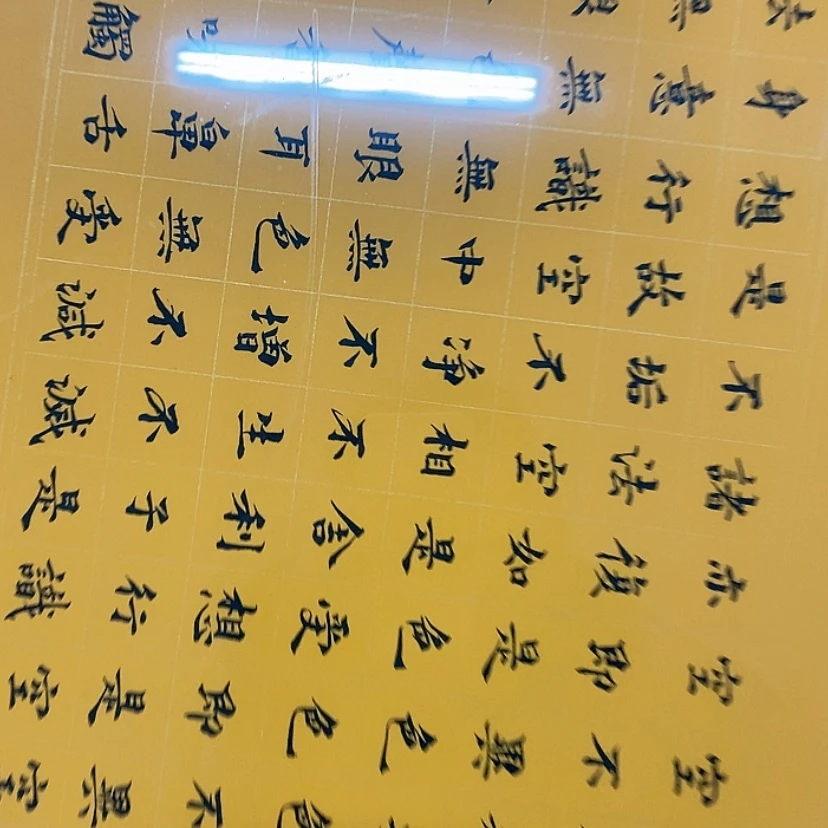 色不異空
空不異色色即是空
空即是色受想行識
亦復如是舍利子是
諸法空相不生不滅
不垢不淨不增不減
是故空中無色無受
想行識無眼耳鼻舌
身意無色聲香味觸